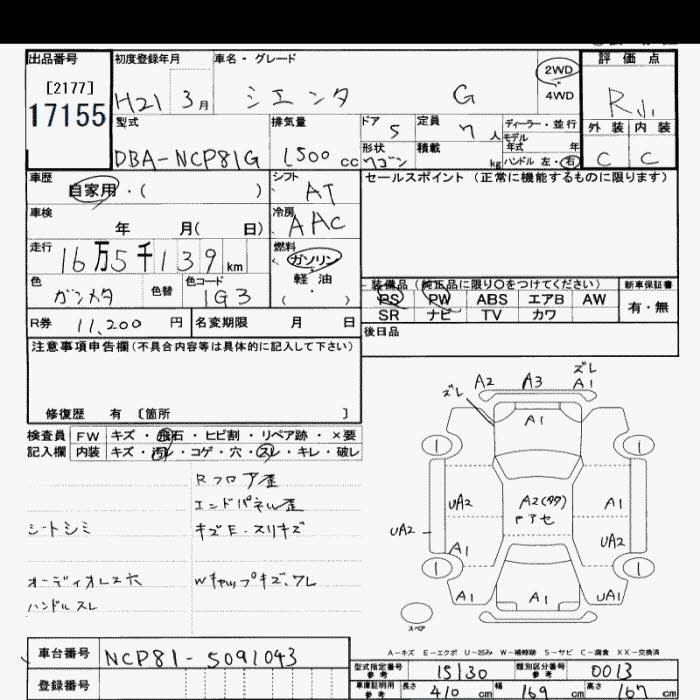 出品番号 初度登録年月 車名・グレード 2WD・4WD 評価点
[2177]
17155
H21 3月 シエンタ G R小
型式 排気量 ドア 定員 ディーラー・並行 外装 内装
DBA-NCP81G 1500 cc 5 7人 モデル年式 年 C C
形状 ワゴン 積載 kg ハンドル 左・右
車歴 シフト セールスポイント(正常に機能するものに限ります)
自家用・( ) AT
車検 冷房
年 月( 日) AAC
走行 燃料
16万5千139km ガソリン・軽油・( )
色 色替 色コード 装備品(純正品に限り○をつけてください) 新車保証書
ガンメタ 1G3 PS PW ABS エアB AW 有・無
R券 11,200円 名変期限 月 日 SR ナビ TV カワ
後日品
注意事項申告欄(不具合内容等は具体的に記入して下さい)
修復歴 有 〔箇所 〕
検査員 FW キズ・飛石・ヒビ割・リペア跡・×要
記入欄 内装 キズ・汚レ・コゲ・穴・スレ・キレ・破レ
Rフロア歪
エンドパネル歪
シートシミ キズE・スリキズ
オーディオレス穴 Wキャップキズ、ワレ
ハンドルスレ
ズレ A2 A3 ズレ A1
A1
1 1
UA2 A2(タタ) A1
アセ
UA2 UA2
A1
1 1
A1 A1 UA1
スペア
A-キズ E-エクボ U-凹み W-補修跡 S-サビ C-腐食 XX-交換済
車台番号 NCP81-5091043
型式指定番号 参考 15130 類別区分番号 参考 0013
登録番号
車庫証明用 参考 長さ 410 cm 幅 169 cm 高さ 167 cm